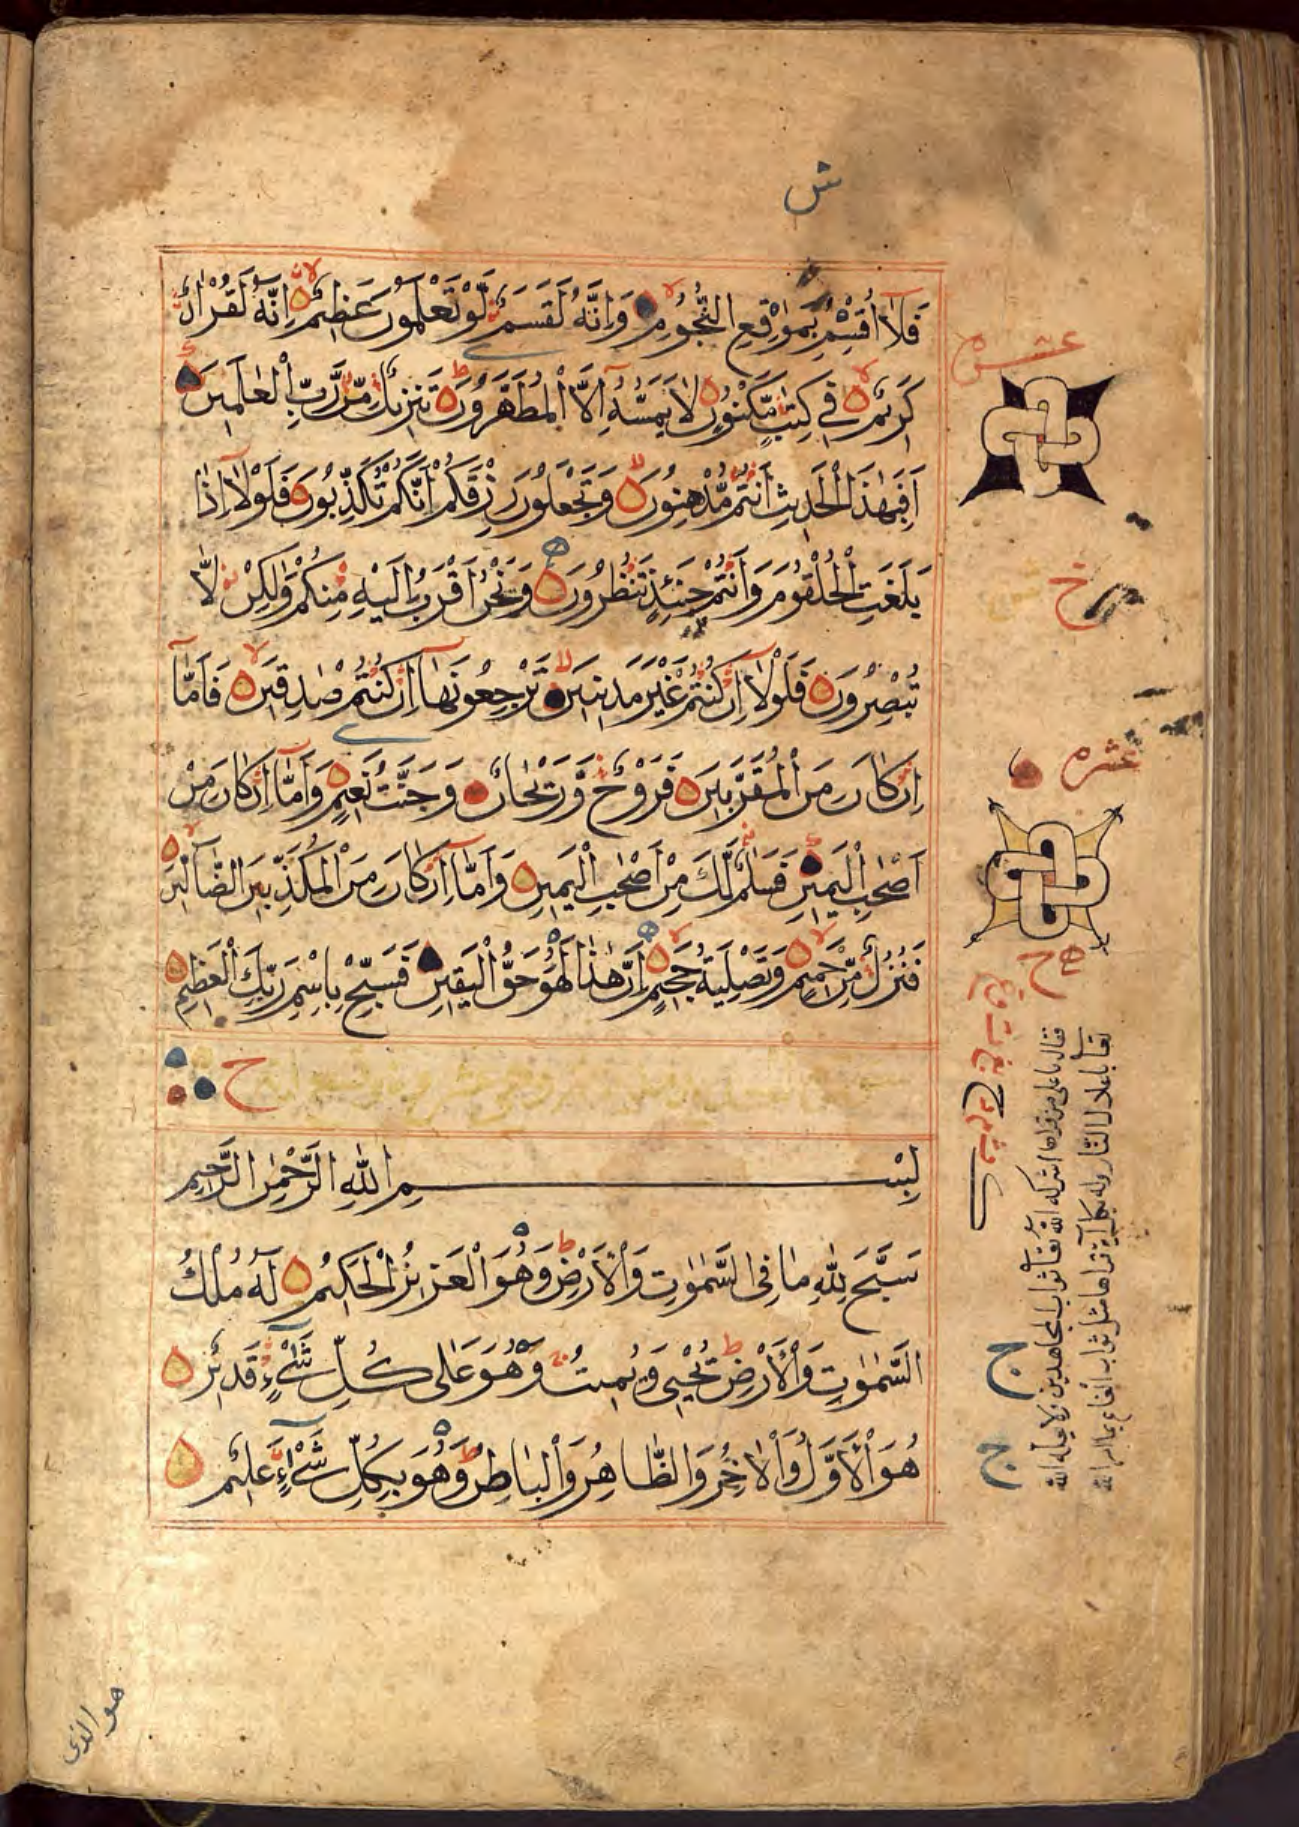 ش
فَلَا أُقْسِمُ بِمَوٰقِعِ النُّجُومِ وَاِنَّهُ لَقَسَمٌ لَّوْ تَعْلَمُونَ عَظِيمٌ اِنَّهُ لَقُرْاٰنٌ
عشر
كَرِيمٌ فِي كِتٰبٍ مَّكْنُونٍ لَا يَمَسُّهُ اِلَّا الْمُطَهَّرُونَ تَنْزِيلٌ مِّنْ رَّبِّ الْعٰلَمِينَ
اَفَبِهٰذَا الْحَدِيثِ اَنْتُمْ مُّدْهِنُونَ وَتَجْعَلُونَ رِزْقَكُمْ اَنَّكُمْ تُكَذِّبُونَ فَلَوْلَا اِذَا
بَلَغَتِ الْحُلْقُومَ وَاَنْتُمْ حِينَئِذٍ تَنْظُرُونَ وَنَحْنُ اَقْرَبُ اِلَيْهِ مِنْكُمْ وَلٰكِنْ لَّا
تُبْصِرُونَ فَلَوْلَا اِنْ كُنْتُمْ غَيْرَ مَدِينِينَ تَرْجِعُونَهَا اِنْ كُنْتُمْ صٰدِقِينَ فَاَمَّا
اِنْ كَانَ مِنَ الْمُقَرَّبِينَ فَرَوْحٌ وَّرَيْحَانٌ وَجَنَّتُ نَعِيمٍ وَاَمَّا اِنْ كَانَ مِنْ
عشره
اَصْحٰبِ الْيَمِينِ فَسَلٰمٌ لَّكَ مِنْ اَصْحٰبِ الْيَمِينِ وَاَمَّا اِنْ كَانَ مِنَ الْمُكَذِّبِينَ الضَّالِّينَ
فَنُزُلٌ مِّنْ حَمِيمٍ وَتَصْلِيَةُ جَحِيمٍ اِنَّ هٰذَا لَهُوَ حَقُّ الْيَقِينِ فَسَبِّحْ بِاسْمِ رَبِّكَ الْعَظِيمِ
بِسْمِ اللّٰهِ الرَّحْمٰنِ الرَّحِيمِ
سَبَّحَ لِلّٰهِ مَا فِي السَّمٰوٰتِ وَالْاَرْضِ وَهُوَ الْعَزِيزُ الْحَكِيمُ لَهُ مُلْكُ
السَّمٰوٰتِ وَالْاَرْضِ يُحْيِي وَيُمِيتُ وَهُوَ عَلٰى كُلِّ شَيْءٍ قَدِيرٌ
هُوَ الْاَوَّلُ وَالْاٰخِرُ وَالظَّاهِرُ وَالْبَاطِنُ وَهُوَ بِكُلِّ شَيْءٍ عَلِيمٌ
هو الذى